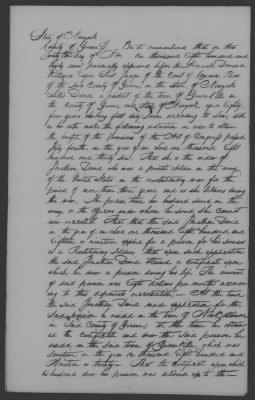 State of New York
County of Greene Be it remembered that on this
day of one thousand eight hundred and
thirty seven personally appeared before the
Judge of the Court of Common Pleas
of the said County of Greene, in the State of New York
a resident of the town of Greenville in
the County of Greene and State of New York, aged eighty
five years who being first duly sworn according to law, doth
on her oath make the following declaration in order to obtain
the benefit of the provision of the Act of Congress passed
July fourth, in the year of our Lord one thousand Eight
hundred and thirty six. That she is the widow of
Jonathan who was a private soldier in the army
of the United States in the revolutionary war for the
period of more than three years, and as she believes during
the war. The precise time her husband served in the
army, or the officers under whom he served she cannot
now recollect. That the said Jonathan
in the year of our Lord one thousand Eight hundred and
Eighteen or nineteen applied for a pension for his services
as a Revolutionary Soldier, that upon such application
the said Jonathan obtained a certificate upon
which he drew a pension during his life. The amount
of said pension was Eight dollars per month according
to this deponents recollection. At the time
the said Jonathan made application for the
said pension he resided in the town of New Baltimore
in said County of Greene, at the time he obtained
the certificate and drew the said pension he
resided in the said town of Greenville, which was
sometime in the year one thousand Eight hundred and
Nineteen or twenty. That the certificate upon which
her husband drew his pension was up to the